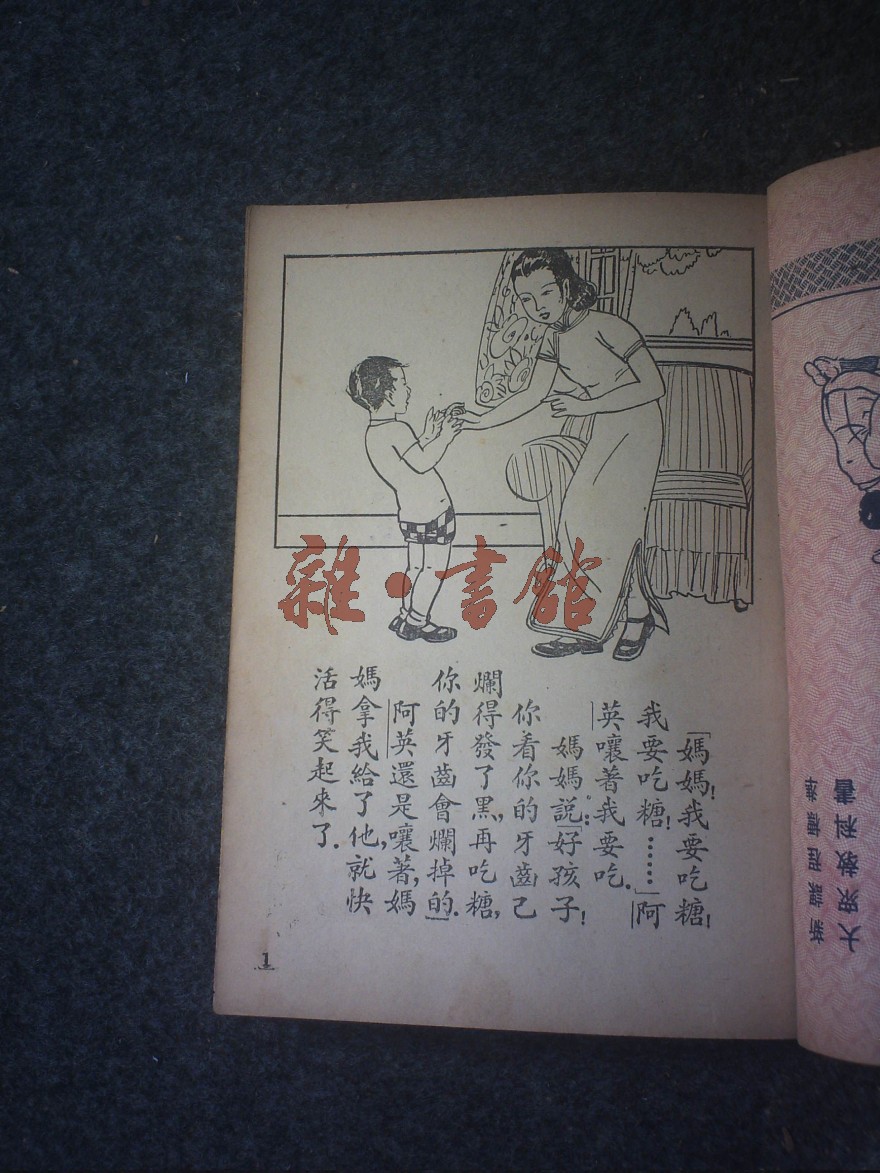 「媽媽!我要吃糖!
我要吃糖!……」阿
英嚷著我要吃.
媽媽説:「好孩子!
你看你的牙齒己
爛得發了黑,再吃糖,
你的牙齒會爛掉的」.
阿英還是嚷著,媽
媽拿我給了他,就快
活得笑起來了.
1
雜·書館
新課程標準
大眾教科書